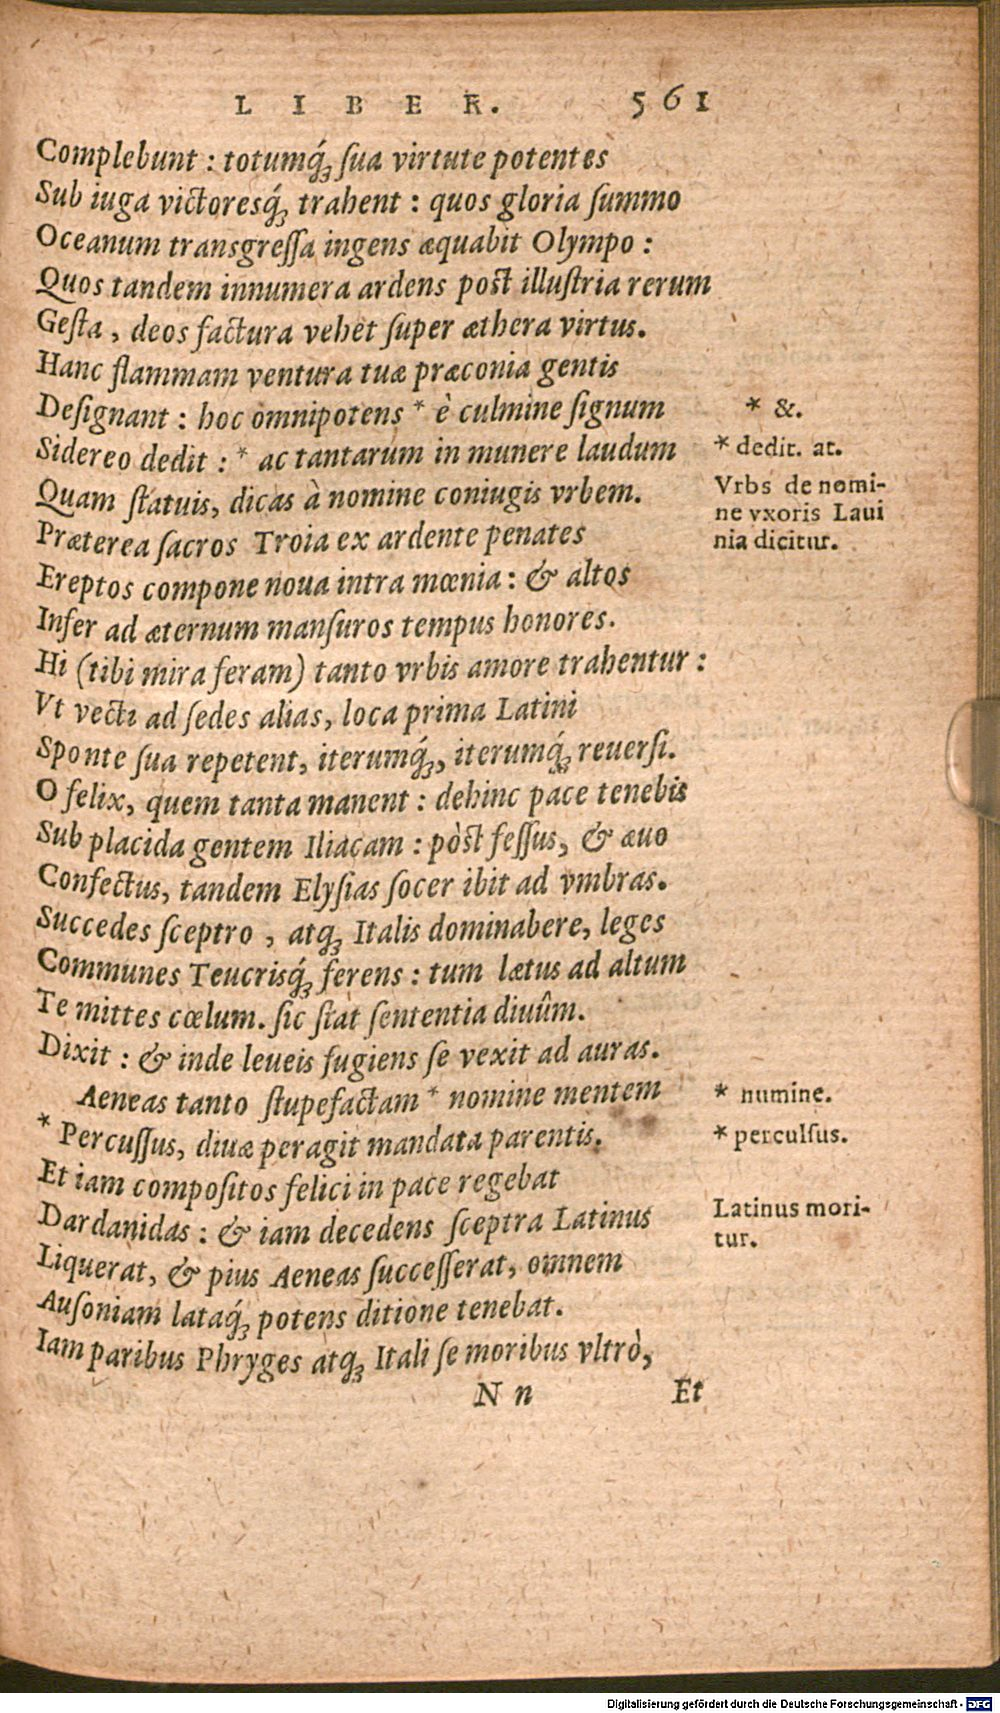 LIBER. 561
Complebunt : totumq́; ſua virtute potentes
Sub iuga victoresq́; trahent : quos gloria ſummo
Oceanum transgreſſa ingens æquabit Olympo :
Quos tandem innumera ardens poſt illuſtria rerum
Geſta , deos factura vehet ſuper æthera virtus.
Hanc flammam ventura tuæ præconia gentis
Deſignant : hoc omnipotens * è culmine ſignum
* &.
Sidereo dedit : * ac tantarum in munere laudum
* dedit. at.
Quam ſtatuis, dicas à nomine coniugis vrbem.
Vrbs de nomi-
ne vxoris Laui
nia dicitur.
Præterea ſacros Troia ex ardente penates
Ereptos compone noua intra mœnia : & altos
Infer ad æternum manſuros tempus honores.
Hi (tibi mira feram) tanto vrbis amore trahentur :
Vt vecti ad ſedes alias, loca prima Latini
Sponte ſua repetent, iterumq́;, iterumq́; reuerſi.
O felix, quem tanta manent : dehinc pace tenebis
Sub placida gentem Iliacam : pòſt feſſus, & æuo
Confectus, tandem Elyſias ſocer ibit ad vmbras.
Succedes ſceptro , atq; Italis dominabere, leges
Communes Teucrisq́; ferens : tum lætus ad altum
Te mittes cœlum. ſic ſtat ſententia diuûm.
Dixit : & inde leueis fugiens ſe vexit ad auras.
Aeneas tanto ſtupefactam * nomine mentem
* numine.
* Percuſſus, diuæ peragit mandata parentis.
* perculſus.
Et iam compoſitos felici in pace regebat
Dardanidas : & iam decedens ſceptra Latinus
Latinus mori-
tur.
Liquerat, & pius Aeneas ſucceſſerat, omnem
Auſoniam lataq́; potens ditione tenebat.
Iam paribus Phryges atq; Itali ſe moribus vltrò,
N n Et
Digitalisierung gefördert durch die Deutsche Forschungsgemeinschaft - DFG